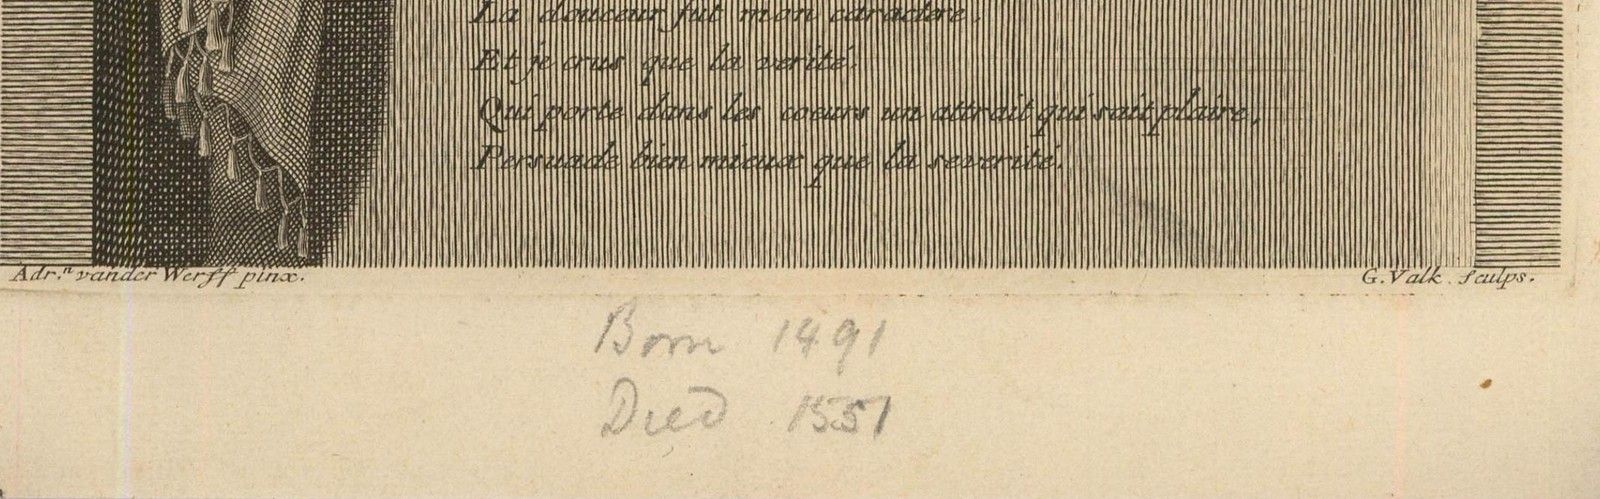 La douceur fut mon caractere,
Et je crus que la verité.
Qui porte dans les coeurs un attrait qui sait plaire,
Persuade bien mieux que la severité.
Adr.ⁿ vander Werff pinx.
G. Valk. sculps.
Born 1491
Died 1551